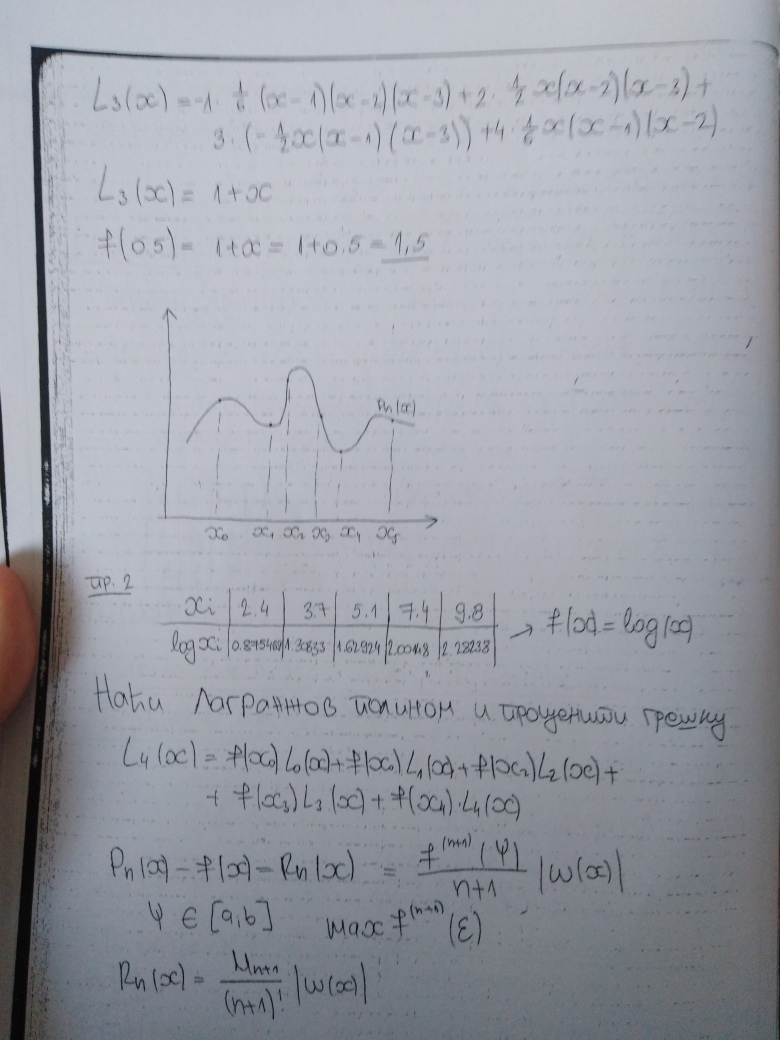 L₃(x) = -1 · 1/6 (x-1)(x-2)(x-3) + 2 · 1/2 x(x-2)(x-3) +
3 · (-1/2 x(x-1)(x-3)) + 4 · 1/6 x(x-1)(x-2)
L₃(x) = 1+x
f(0.5) = 1+x = 1+0.5 = 1,5
Pn(x)
x₀ x₁ x₂ x₃ x₄ x₅
пр. 2
xi | 2.4 | 3.7 | 5.1 | 7.4 | 9.8 |
log xi | 0.875469 | 1.30833 | 1.62924 | 2.00148 | 2.28238 | → f(x) = log(x)
Наћи Лагранжов полином и проценити грешку
L₄(x) = f(x₀) L₀(x) + f(x₁) L₁(x) + f(x₂) L₂(x) +
+ f(x₃) L₃(x) + f(x₄) · L₄(x)
Pn(x) - f(x) = Rn(x) = f⁽ⁿ⁺¹⁾(Ψ) / n+1 |w(x)|
Ψ ∈ [a,b] max f⁽ⁿ⁺¹⁾(ξ)
Rn(x) = Mn+1 / (n+1)! |w(x)|